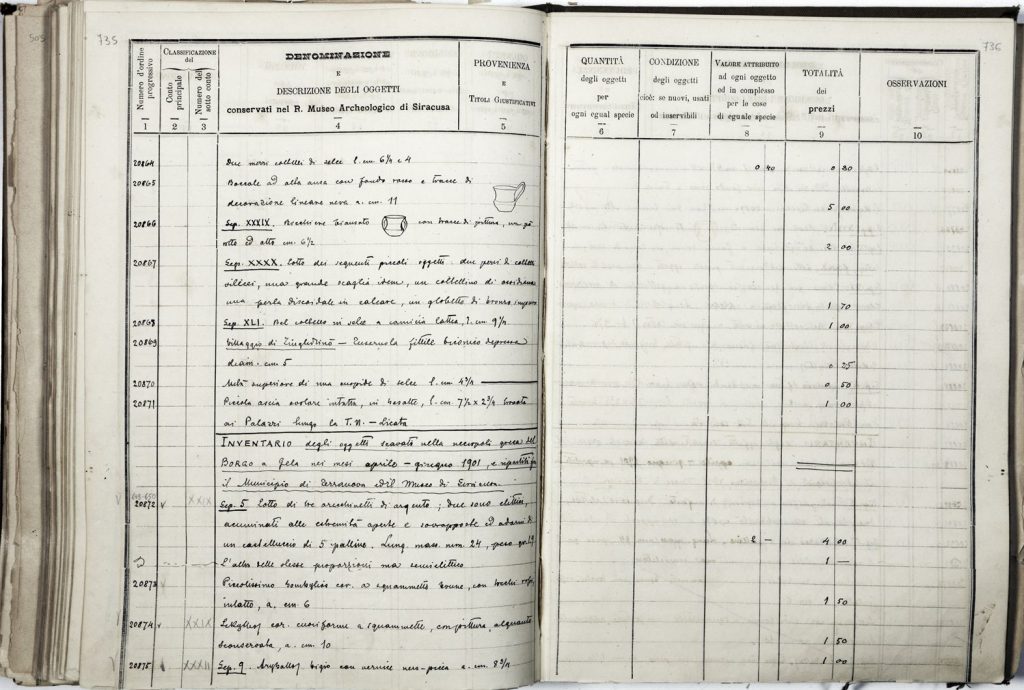 505
735
Numero d'ordine progressivo
1
CLASSIFICAZIONE del
Conto principale
2
Numero del sotto conto
3
DENOMINAZIONE
E
DESCRIZIONE DEGLI OGGETTI
conservati nel R. Museo Archeologico di Siracusa
4
PROVENIENZA
E
TITOLI GIUSTIFICATIVI
5
20864 Due mezzi coltelli di selce l. cm 6½ e 4
20865 Boccale ad alta ansa con fondo rosso e tracce di
decorazione lineare nera a. cm. 11
20866 Sep. XXXIX. Bicchiere con tracce di pittura,
ed alto cm. 6½
20867 Sep. XXXX. Lotto dei seguenti piccoli oggetti: due pezzi di coltelli
silicei, una grande scaglia idem, un coltellino di ossidiana
una perla discoidale in calcare, un globetto di bronzo
20868 Sep. XLI. Bel coltello in selce a camicia lattea, l. cm 9½
20869 Villaggio di — fittile biconico depressa
diam. cm 5
20870 Metà superiore di una cuspide di selce l. cm 4¾
20871 Piccola ascia ovolare intatta, in basalte, l. cm. 7½ x 2¾ trovata
ai Palazzi lungo la — Licata
INVENTARIO degli oggetti scavati nella necropoli greca del
BORGO a Gela nei mesi aprile – giugno 1901, e ripartiti fra
il Municipio di Terranova ed il Museo di Siracusa
20872 v XXIX Sep. 5 Lotto di tre orecchinetti di argento; due sono elittici,
acuminati alle estremità aperte e sovrapposte ed adorni di
un castelluccio di 5 palline. Lung. mass. mm. 24, peso gr.
L'altro delle stesse proporzioni ma semielittico
20873 v Piccolissimo bombylios cor. a squammette brune, con tocchi
intatto, a. cm 6
20874 v XXIX Lekythos cor. cuoriforme a squammette, con pittura, alquanto
sconservata, a. cm. 10
20875 XXXII Sep. 9. Aryballos bigio con vernice nero-picea a. cm. 8¾
736
QUANTITÀ
degli oggetti
per
ogni egual specie
6
CONDIZIONE
degli oggetti
cioè: se nuovi, usati
od inservibili
7
VALORE ATTRIBUITO
ad ogni oggetto
od in complesso
per le cose
di eguale specie
8
TOTALITÀ
dei
prezzi
9
OSSERVAZIONI
10
0 40 0 80
5 00
2 00
1 70
1 00
0 25
0 50
1 00
2 — 4 00
1 —
1 50
1 50
1 00